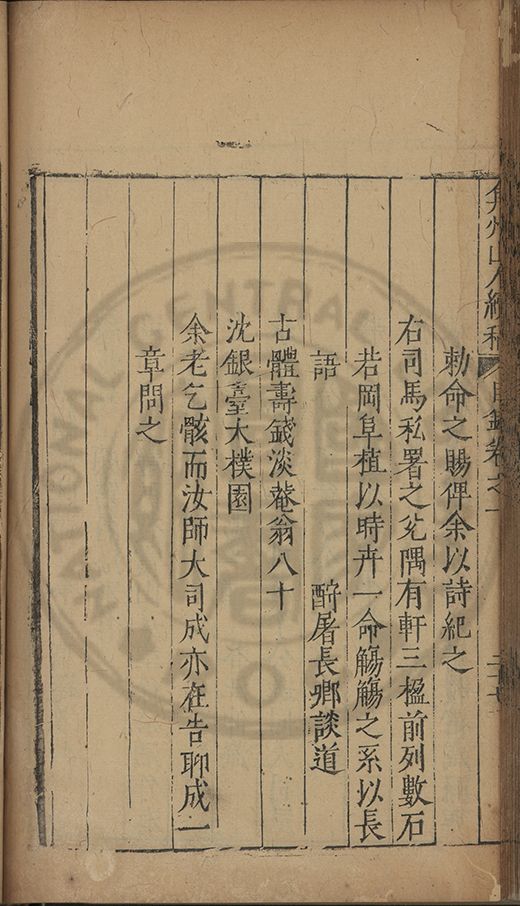 弇州山人續稿 目錄卷之一
勅命之賜俾余以詩紀之
右司馬私署之兌隅有軒三楹前列數石
若岡阜植以時卉一命觴觴之系以長
語 酧屠長卿談道
古體壽錢淡菴翁八十
沈銀臺大樸園
余老乞骸而汝師大司成亦在告聊成一
章問之